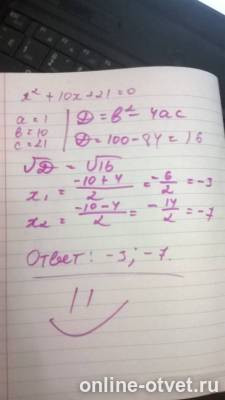 x² + 10x + 21 = 0
a = 1
b = 10
c = 21
D = b² - 4ac
D = 100 - 84 = 16
√D = √16
x₁ = (-10 + 4)/2 = -6/2 = -3
x₂ = (-10 - 4)/2 = -14/2 = -7
Ответ: -3; -7.
online-otvet.ru